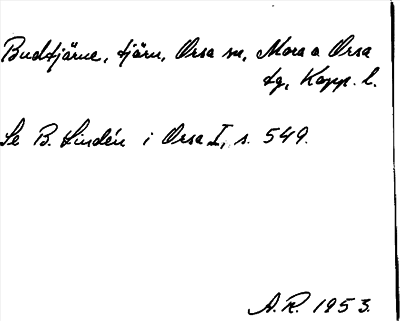 Budtjärne, tjärn, Orsa sn, Mora o Orsa
tg, Kopp. l.
Se B. Lindén i Orsa I, s. 549.
A.R. 1953.